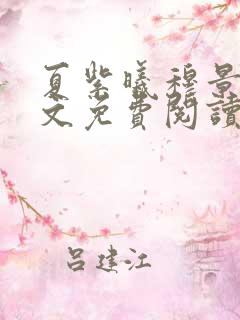 夏紫曦穆景
文免費閱讀
呂建江